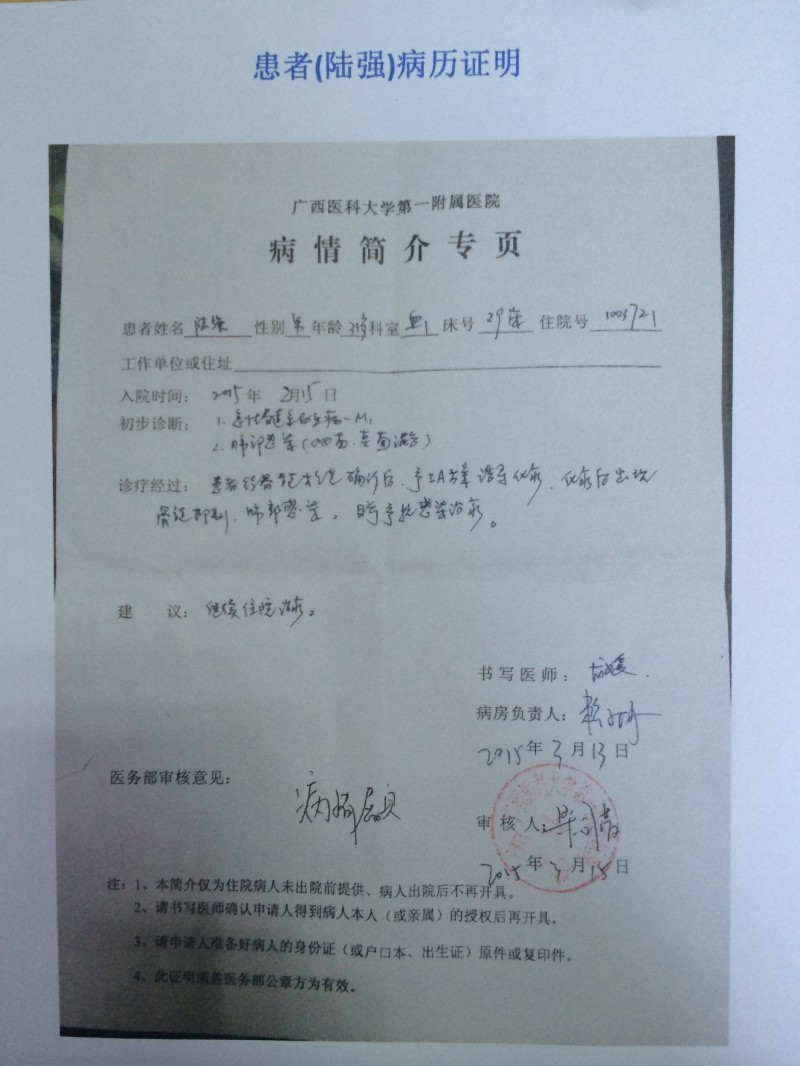 患者(陆强)病历证明
广西医科大学第一附属医院
病情简介专页
患者姓名 陆强 性别 男 年龄 31岁 科室 血1 床号 29床 住院号 1003721
工作单位或住址
入院时间: 2015年 2月15日
初步诊断: 1. 急性髓系白血病-M1
2. 肺部感染(细菌、真菌混合)
诊疗经过: 患者经骨髓 确诊后,予IA方案诱导化疗,化疗后出现
骨髓抑制、肺部感染。 予抗感染治疗。
建 议: 继续住院治疗。
书写医师:
病房负责人:
2015年3月13日
医务部审核意见:
病情属实
审核人:
2015年3月15日
注: 1、本简介仅为住院病人未出院前提供、病人出院后不再开具。
2、请书写医师确认申请人得到病人本人(或亲属)的授权后再开具。
3、请申请人准备好病人的身份证(或户口本、出生证)原件或复印件。
4、此证明须盖医务部公章方为有效。